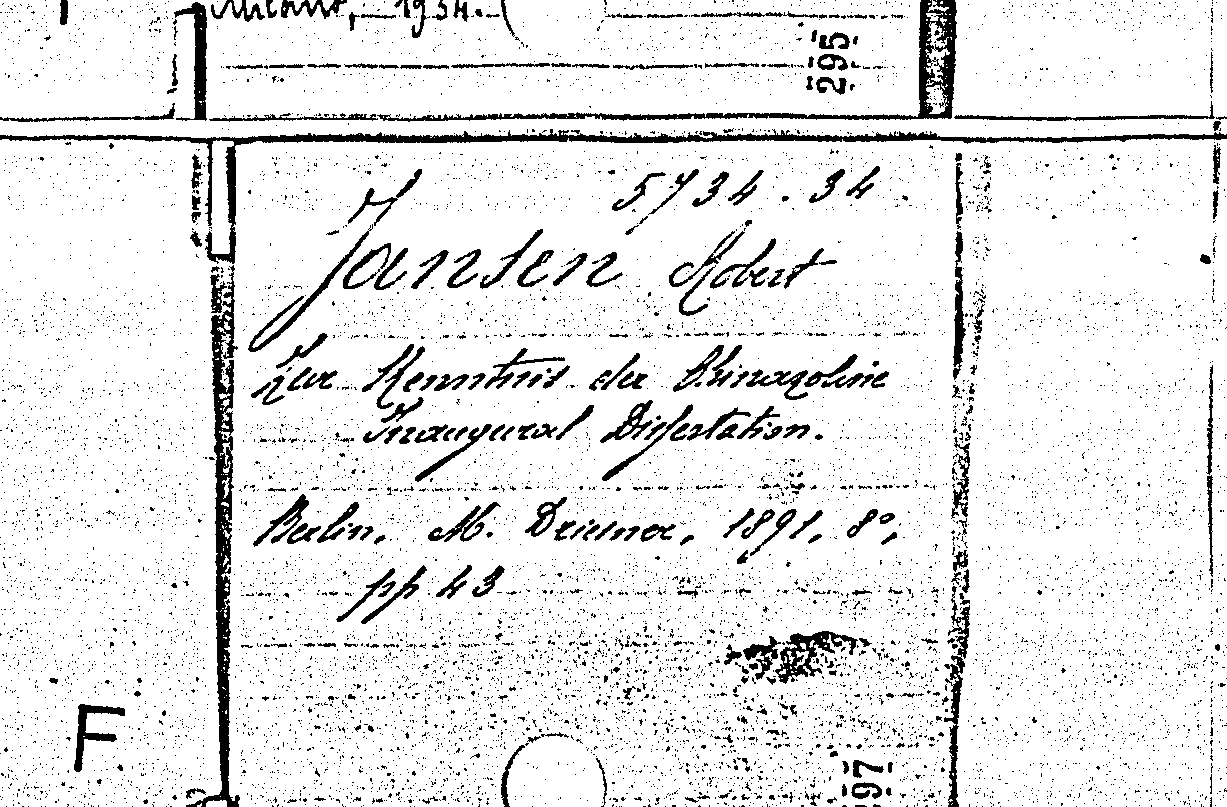 Milano, 1934.
295
5734.34
Jansen Robert
Zur Kenntnis der Chinazoline
Inaugural Dissertation.
Berlin, M. Driesner, 1891, 8º,
pp 43
F
297